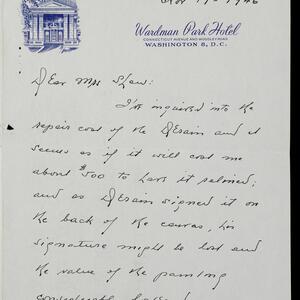 Nov 19 - 1946
Wardman Park Hotel
CONNECTICUT AVENUE AND WOODLEY ROAD
WASHINGTON 8, D.C.
Dear Mrs Shaw:
I've inquired into the
repair cost of the and it
seems as if it will cost me
about $500 to have it relined;
and as signed it on
the back of the canvas, his
signature might be lost and
the value of the painting
considerably